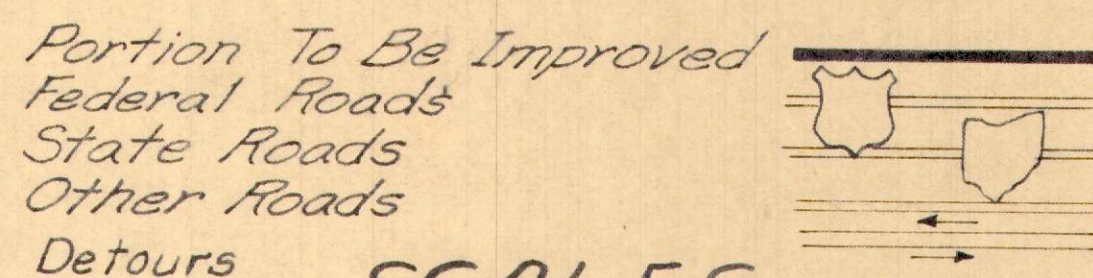 Portion To Be Improved
Federal Roads
State Roads
Other Roads
Detours
SCALES